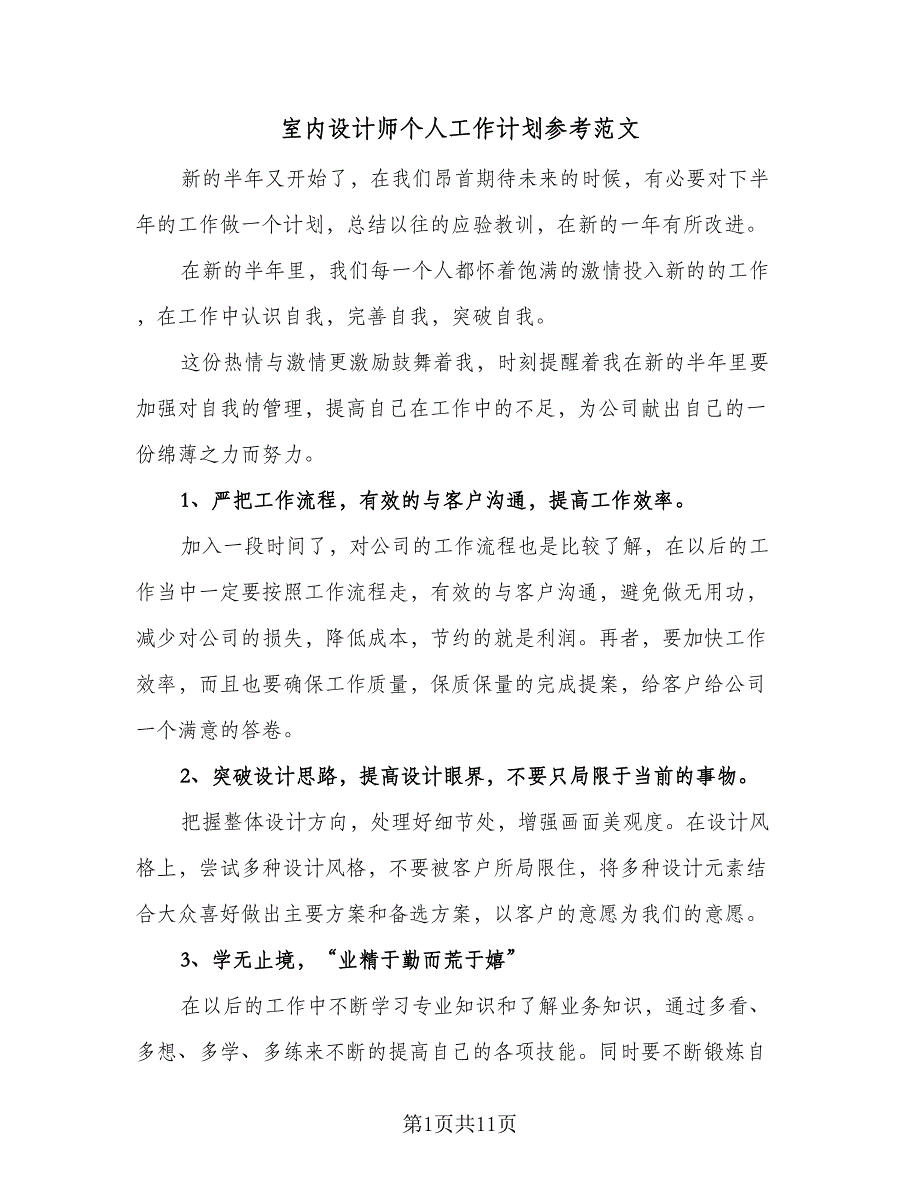 室内设计师个人工作计划参考范文
新的半年又开始了，在我们昂首期待未来的时候，有必要对下半
年的工作做一个计划，总结以往的应验教训，在新的一年有所改进。
在新的半年里，我们每一个人都怀着饱满的激情投入新的的工作
，在工作中认识自我，完善自我，突破自我。
这份热情与激情更激励鼓舞着我，时刻提醒着我在新的半年里要
加强对自我的管理，提高自己在工作中的不足，为公司献出自己的一
份绵薄之力而努力。
1、严把工作流程，有效的与客户沟通，提高工作效率。
加入一段时间了，对公司的工作流程也是比较了解，在以后的工
作当中一定要按照工作流程走，有效的与客户沟通，避免做无用功，
减少对公司的损失，降低成本，节约的就是利润。再者，要加快工作
效率，而且也要确保工作质量，保质保量的完成提案，给客户给公司
一个满意的答卷。
2、突破设计思路，提高设计眼界，不要只局限于当前的事物。
把握整体设计方向，处理好细节处，增强画面美观度。在设计风
格上，尝试多种设计风格，不要被客户所局限住，将多种设计元素结
合大众喜好做出主要方案和备选方案，以客户的意愿为我们的意愿。
3、学无止境，“业精于勤而荒于嬉”
在以后的工作中不断学习专业知识和了解业务知识，通过多看、
多想、多学、多练来不断的提高自己的各项技能。同时要不断锻炼自
第1页共11页